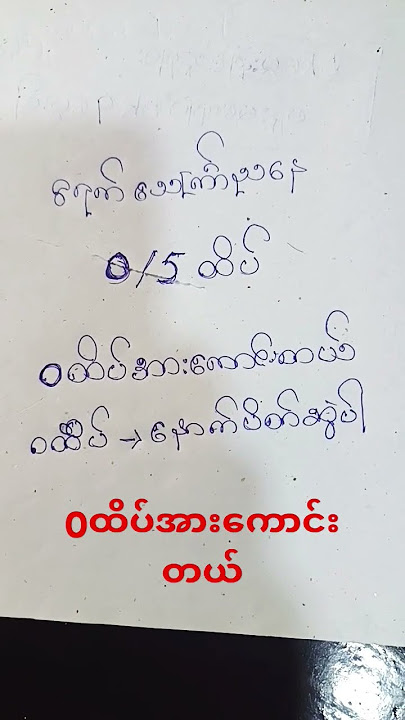 ၉ရက် သောကြာညနေ
0/5 ထိပ်
0ထိပ်အားကောင်းတယ်
၀ထိပ် → နောက်ပိတ်ဆွဲပါ
0ထိပ်အားကောင်း
တယ်